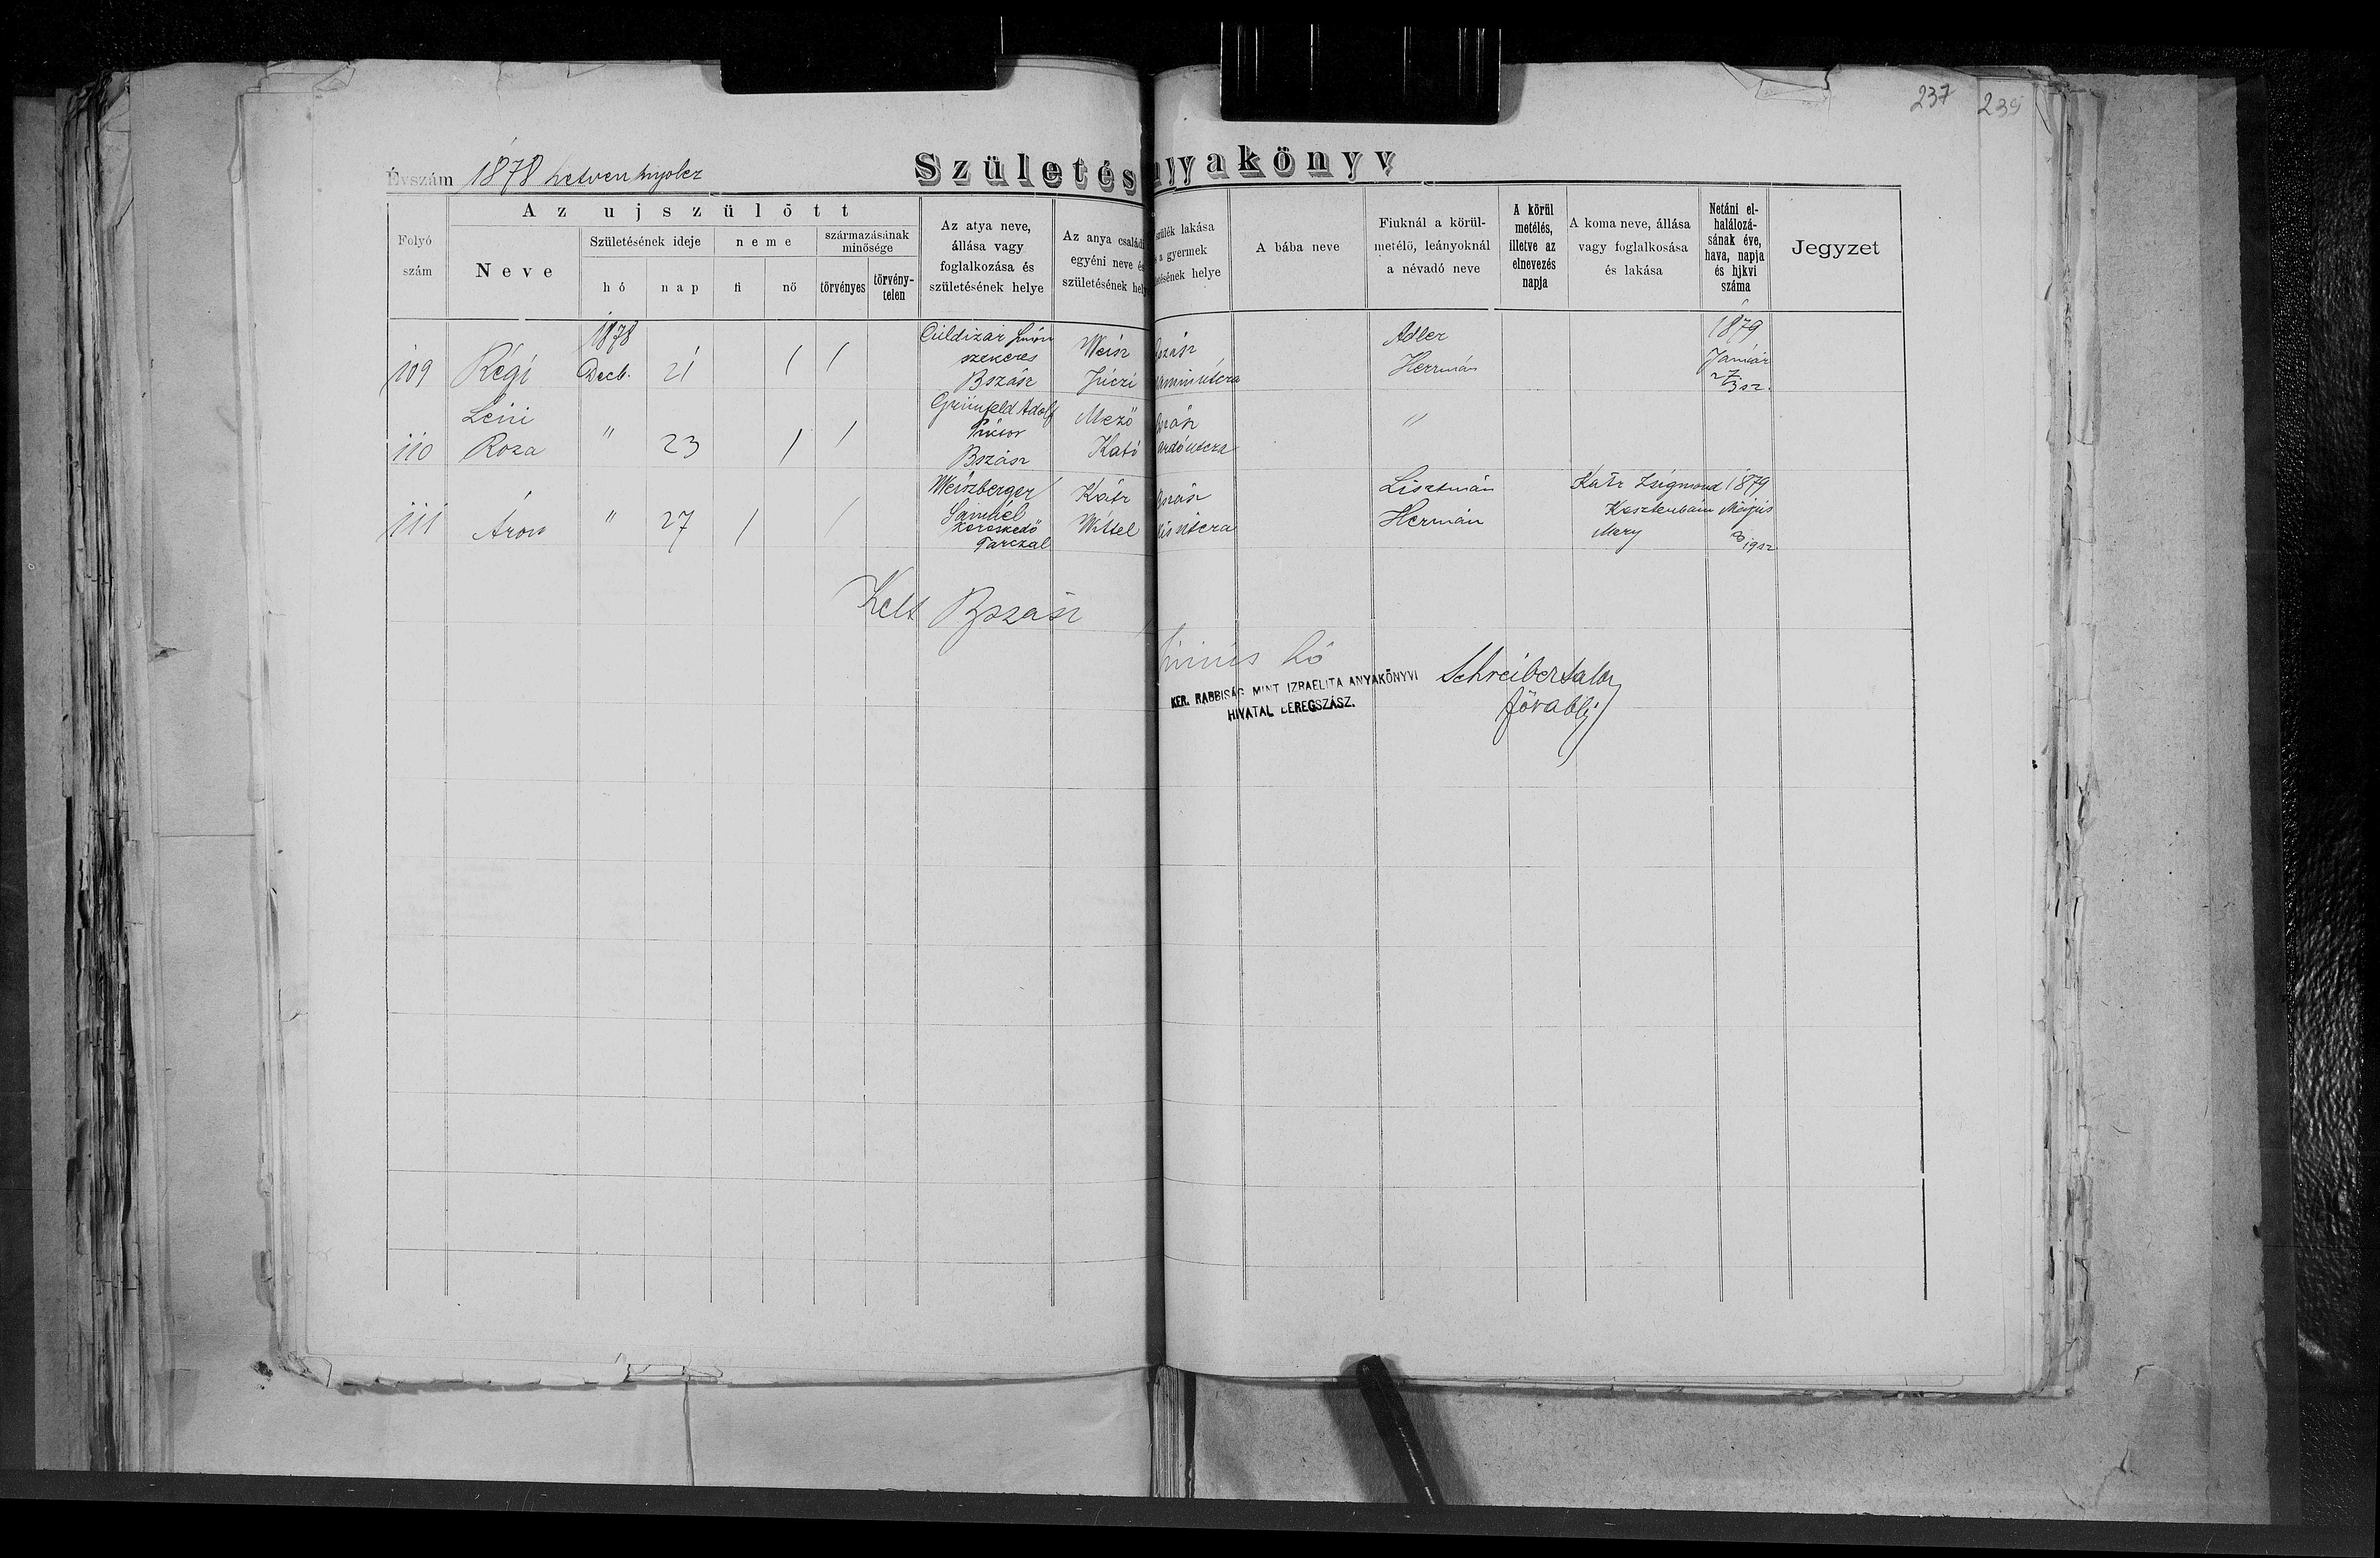 237 239
Évszám 1878 hetven nyolcz
Születés nyakönyv
Folyó
szám
Az ujszülött
Neve
Születésének ideje
hó
nap
neme
fi
nő
származásának
minősége
törvényes
törvény-
telen
Az atya neve,
állása vagy
foglalkozása és
születésének helye
Az anya családi
egyéni neve és
születésének hely
szülék lakása
s a gyermek
etésének helye
A bába neve
Fiuknál a körül-
metélő, leányoknál
a névadó neve
A körül
metélés,
illetve az
elnevezés
napja
A koma neve, állása
vagy foglalkosása
és lakása
Netáni el-
halálozá-
sának éve,
hava, napja
és hjkvi
száma
Jegyzet
109
Régi
1878
Decb.
21
/
/
szekeres
Bszász
Weisz
Júczi
Adler
Herrmán
1879
Január
27
3 sz.
110
Leni
Roza
"
23
/
/
Grünfeld Adolf
Bszász
Mező
Kató
"
111
Áron
"
27
/
/
Weiszberger
Sámuel
Kereskedő
Tarczal
Kátz
Wittel
Lisztmán
Hermán
Katz Zsigmond
Kesztenbaum
Mary
1879
Május
19 sz
Kelt Bszász
június hó
KER. RABBISÁG MINT IZRAELITA ANYAKÖNYVI
HIVATAL BEREGSZÁSZ.
Schreiber Salam
főrabbi